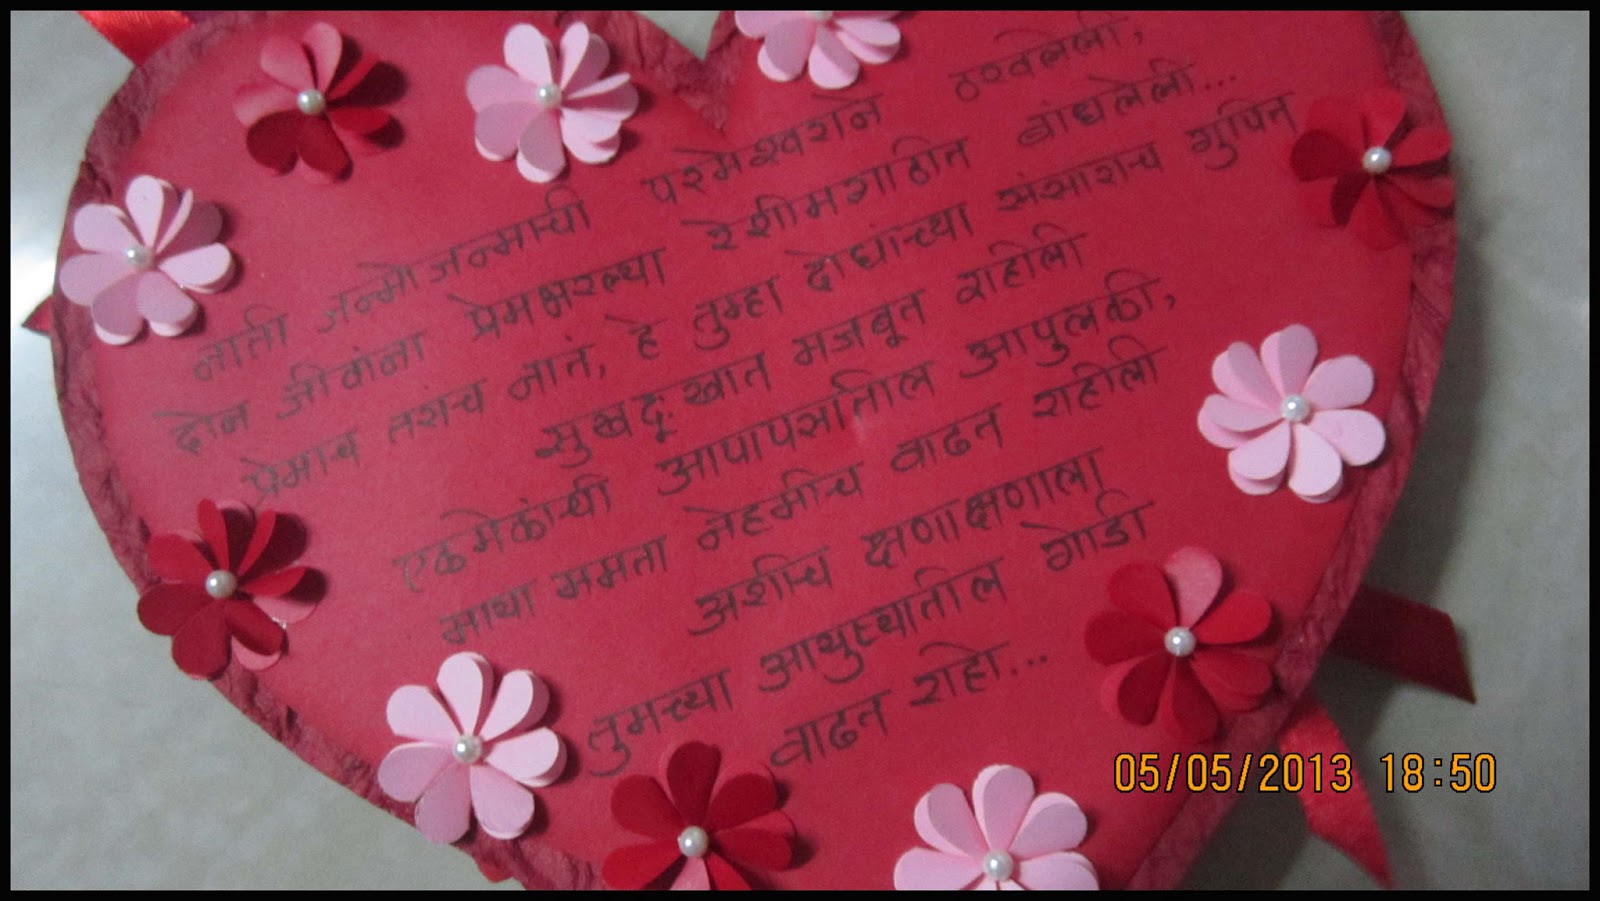 नाती जन्मोजन्माची परमेश्वराने ठरवलेली,
दोन जीवांना प्रेमभरल्या रेशीमगाठीत बांधलेली...
प्रेमाच तसच नातं, हे तुम्हा दोघांच्या संसाराच गुपित
सुखदूःखात मजबूत राहीली
एकमेकांची आपापसातील आपुलकी,
माया ममता नेहमीच वाढत राहीली
अशीच क्षणाक्षणाला
तुमच्या आयुष्यातील गोडी
वाढत राहो...
05/05/2013 18:50